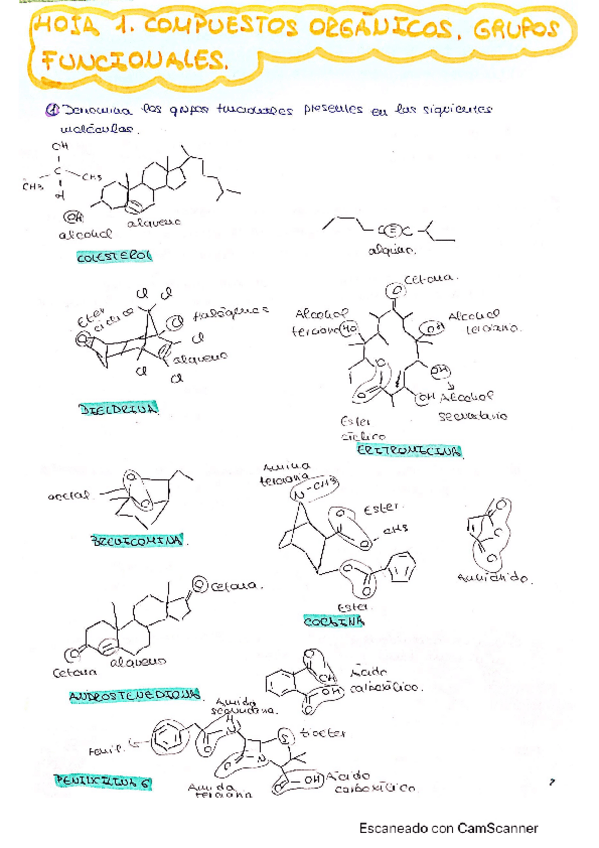 HOJA 1. COMPUESTOS ORGÁNICOS. GRUPOS
FUNCIONALES.
① Denomina los grupos funcionales presentes en las siguientes
moléculas.
OH
CH3 C CH3
H
OH
alcohol
alqueno
COLESTEROL
C≡C
alquino.
Cl Cl
Eter
cíclico
Cl
Halógenos
O
Cl
alqueno
Cl
Cl
DIELDRINA
Cetona.
O
Alcohol
terciario HO
OH Alcohol
terciario.
OH
OH Alcohol
secundario
O
O
Ester
cíclico
ERITROMICINA
acetal
O
O
BREVICOMINA
Amina
terciaria
N-CH3
Ester.
O
O CH3
O
O
Ester.
COCAINA
O
O
O
Anhídrido.
O Cetona.
O
Cetona
alqueno
ANDROSTENEDIONA
O
OH
OH
O
Ácido
carboxílico.
Amida
secundaria.
H
N
O
Fenil
S
tioeter
N
O
Amida
terciaria
OH
O
Ácido
carboxílico
PENICILINA G
Escaneado con CamScanner